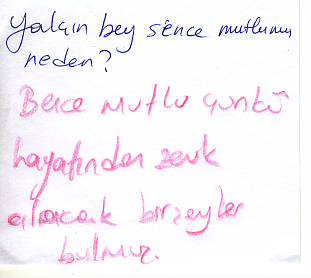 Yalçın bey sence mutlumu
neden?
Bence mutlu çünkü
hayatından zevk
alacak birşeyler
bulmuş.